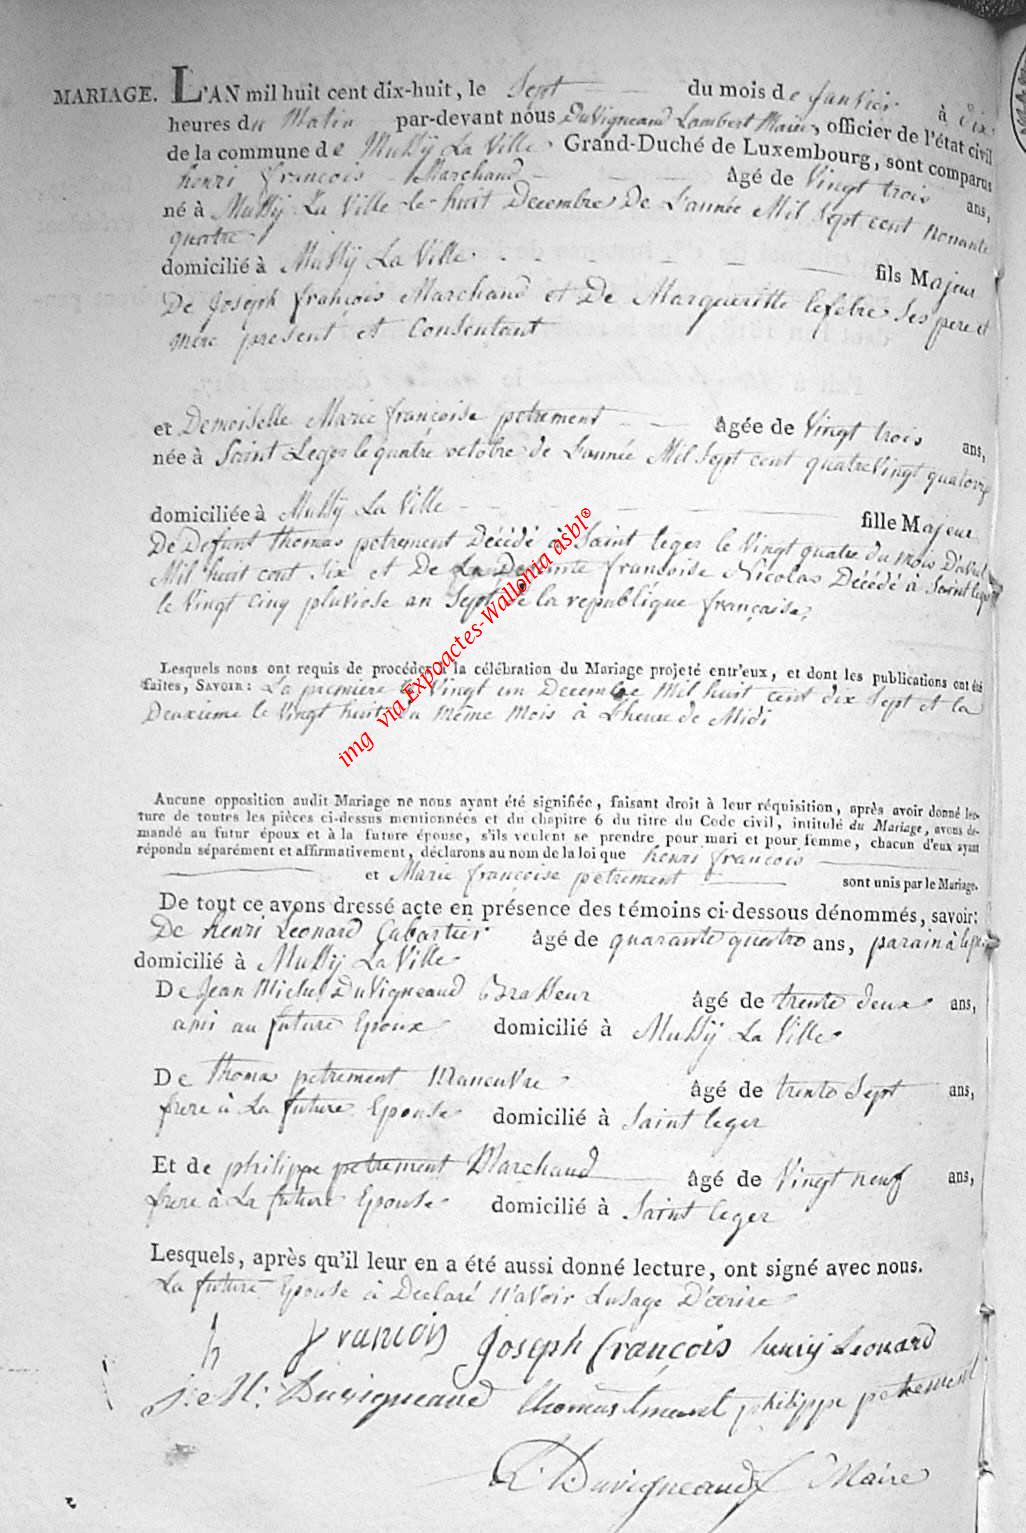 MARIAGE. L'AN mil huit cent dix-huit, le Sept du mois de Janvier à dix
heures du Matin par-devant nous Duvigneaud Lambert Maire, officier de l'état civil
de la commune de Mussÿ La Ville. Grand-Duché de Luxembourg, sont comparus
henri françois Marchand âgé de Vingt trois ans,
né à Mussÿ La Ville le huit Decembre De L'année Mil Sept cent nonante
quatre
domicilié à Mussÿ La Ville fils Majeur
De Joseph françois Marchand et De Margueritte lefebre Ses pere et
mere present et Consentant
et Demoiselle Marie françoise petrement âgée de Vingt trois ans,
née à Saint Leger le quatre octobre de L'année Mil Sept cent quatre Vingt quatorze
domiciliée à Mussÿ La Ville fille Majeur
De Defunt thomas petrement Décédé à Saint leger le Vingt quatre du mois D'avril
Mil huit cent Six et De La Defunte françoise Nicolas Décédé à Saint leger
le Vingt Cinq pluviose an Sept de la republique française,
Lesquels nous ont requis de procéder à la célébration du Mariage projeté entr'eux, et dont les publications ont été
faites, SAVOIR: La premiere le Vingt un Decembre Mil huit cent dix Sept et la
Deuxieme le Vingt huit du Même Mois à L'heure de Midi
Aucune opposition audit Mariage ne nous ayant été signifiée, faisant droit à leur réquisition, après avoir donné lec-
ture de toutes les pièces ci-dessus mentionnées et du chapitre 6 du titre du Code civil, intitulé du Mariage, avons de-
mandé au futur époux et à la future épouse, s'ils veulent se prendre pour mari et pour femme, chacun d'eux ayant
répondu séparément et affirmativement, déclarons au nom de la loi que henri françois
et Marie françoise petrement sont unis par le Mariage.
De tout ce avons dressé acte en présence des témoins ci-dessous dénommés, savoir:
De henri Leonard Cabartier âgé de quarante quatre ans, parain à
domicilié à Mussÿ La Ville
De Jean Michel Duvigneaud Brasseur âgé de trente deux ans,
ami au future Epoux domicilié à Mussÿ La Ville
De thomas petrement Maneuvre âgé de trente Sept ans,
frere à La future Epouse domicilié à Saint leger
Et de philippe petrement Marchand âgé de Vingt neuf ans,
frere à La future Epouse domicilié à Saint leger
Lesquels, après qu'il leur en a été aussi donné lecture, ont signé avec nous.
La future Epouse à Declaré N'avoir Lusage D'ecrire
h françois Joseph françois henrij Leonard
J: M: Duvigneaud philippe petrement
L. Duvigneaud Maire
img via Expoactes-Wallonia asbl®